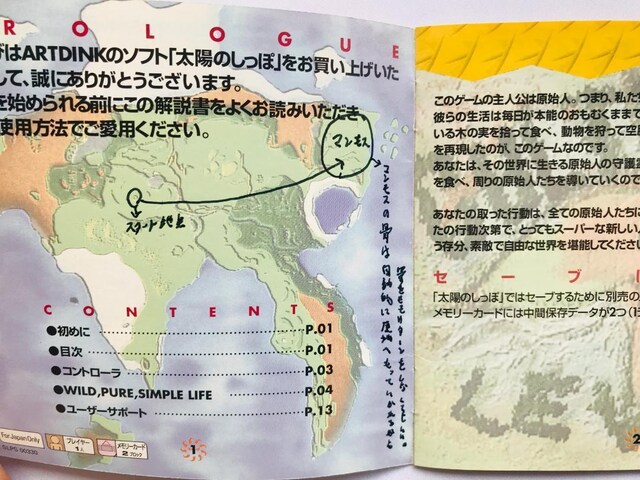 PROLOGUE
びはARTDINKのソフト「太陽のしっぽ」をお買い上げいた
して、誠にありがとうございます。
を始められる前にこの解説書をよくお読みいただき、
使用方法でご愛用ください。
マンモス
スタート地点
マンモスの骨は
自動的に原始へもっていかれるから
CONTENTS
●初めに P.01
●目次 P.01
●コントローラ P.03
●WILD,PURE,SIMPLE LIFE P.04
●ユーザーサポート P.13
For Japan Only
SLPS 00330
プレイヤー
1人
メモリーカード
2ブロック
1
このゲームの主人公は原始人。つまり、私た
彼らの生活は毎日が本能のおもむくままで
いる木の実を拾って食べ、動物を狩って空
を再現したのが、このゲームなのです。
あなたは、その世界に生きる原始人の守護
を食べ、周りの原始人たちを導いていくので
あなたの取った行動は、全ての原始人たちに
たの行動次第で、とってもスーパーな新しい
う存分、素敵で自由な世界を堪能してください
セーブ
「太陽のしっぽ」ではセーブするために別売の
メモリーカードには中間保存データが2つ(1
2